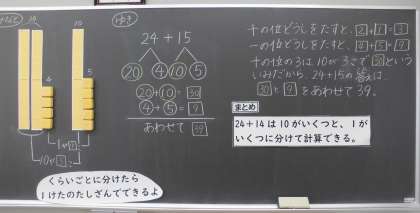 十
十
4
5
1が9
10が3
くらいごとに分けたら
1けたのたしざんでできるよ
ゆき
24+15
20 4 10 5
20+10=30
4+5=9
あわせて39
十の位どうしをたすと、2+1=3
一の位どうしをたすと、4+5=9
十の位の3は10が3こで30という
いみだから、24+15の答えは
30と9をあわせて39.
まとめ
24+14は10がいくつと、1が
いくつに分けて計算できる。